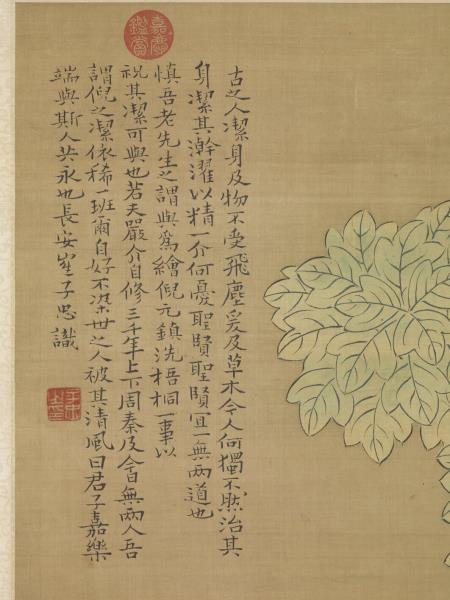 古之人潔身及物不受飛塵爰及草木今人何獨不然治其
身潔其澣濯以精一介何憂聖賢聖賢宜一無兩道也
慎吾老先生之謂與為繪倪元鎮洗梧桐一事以
祝其潔可與也若夫嚴介自修三千年上下周秦及今無兩人吾
謂倪之潔依稀一班爾自好不染世之人被其清風曰君子嘉樂
端與斯人共永也長安崔子忠識
嘉慶
鑑賞